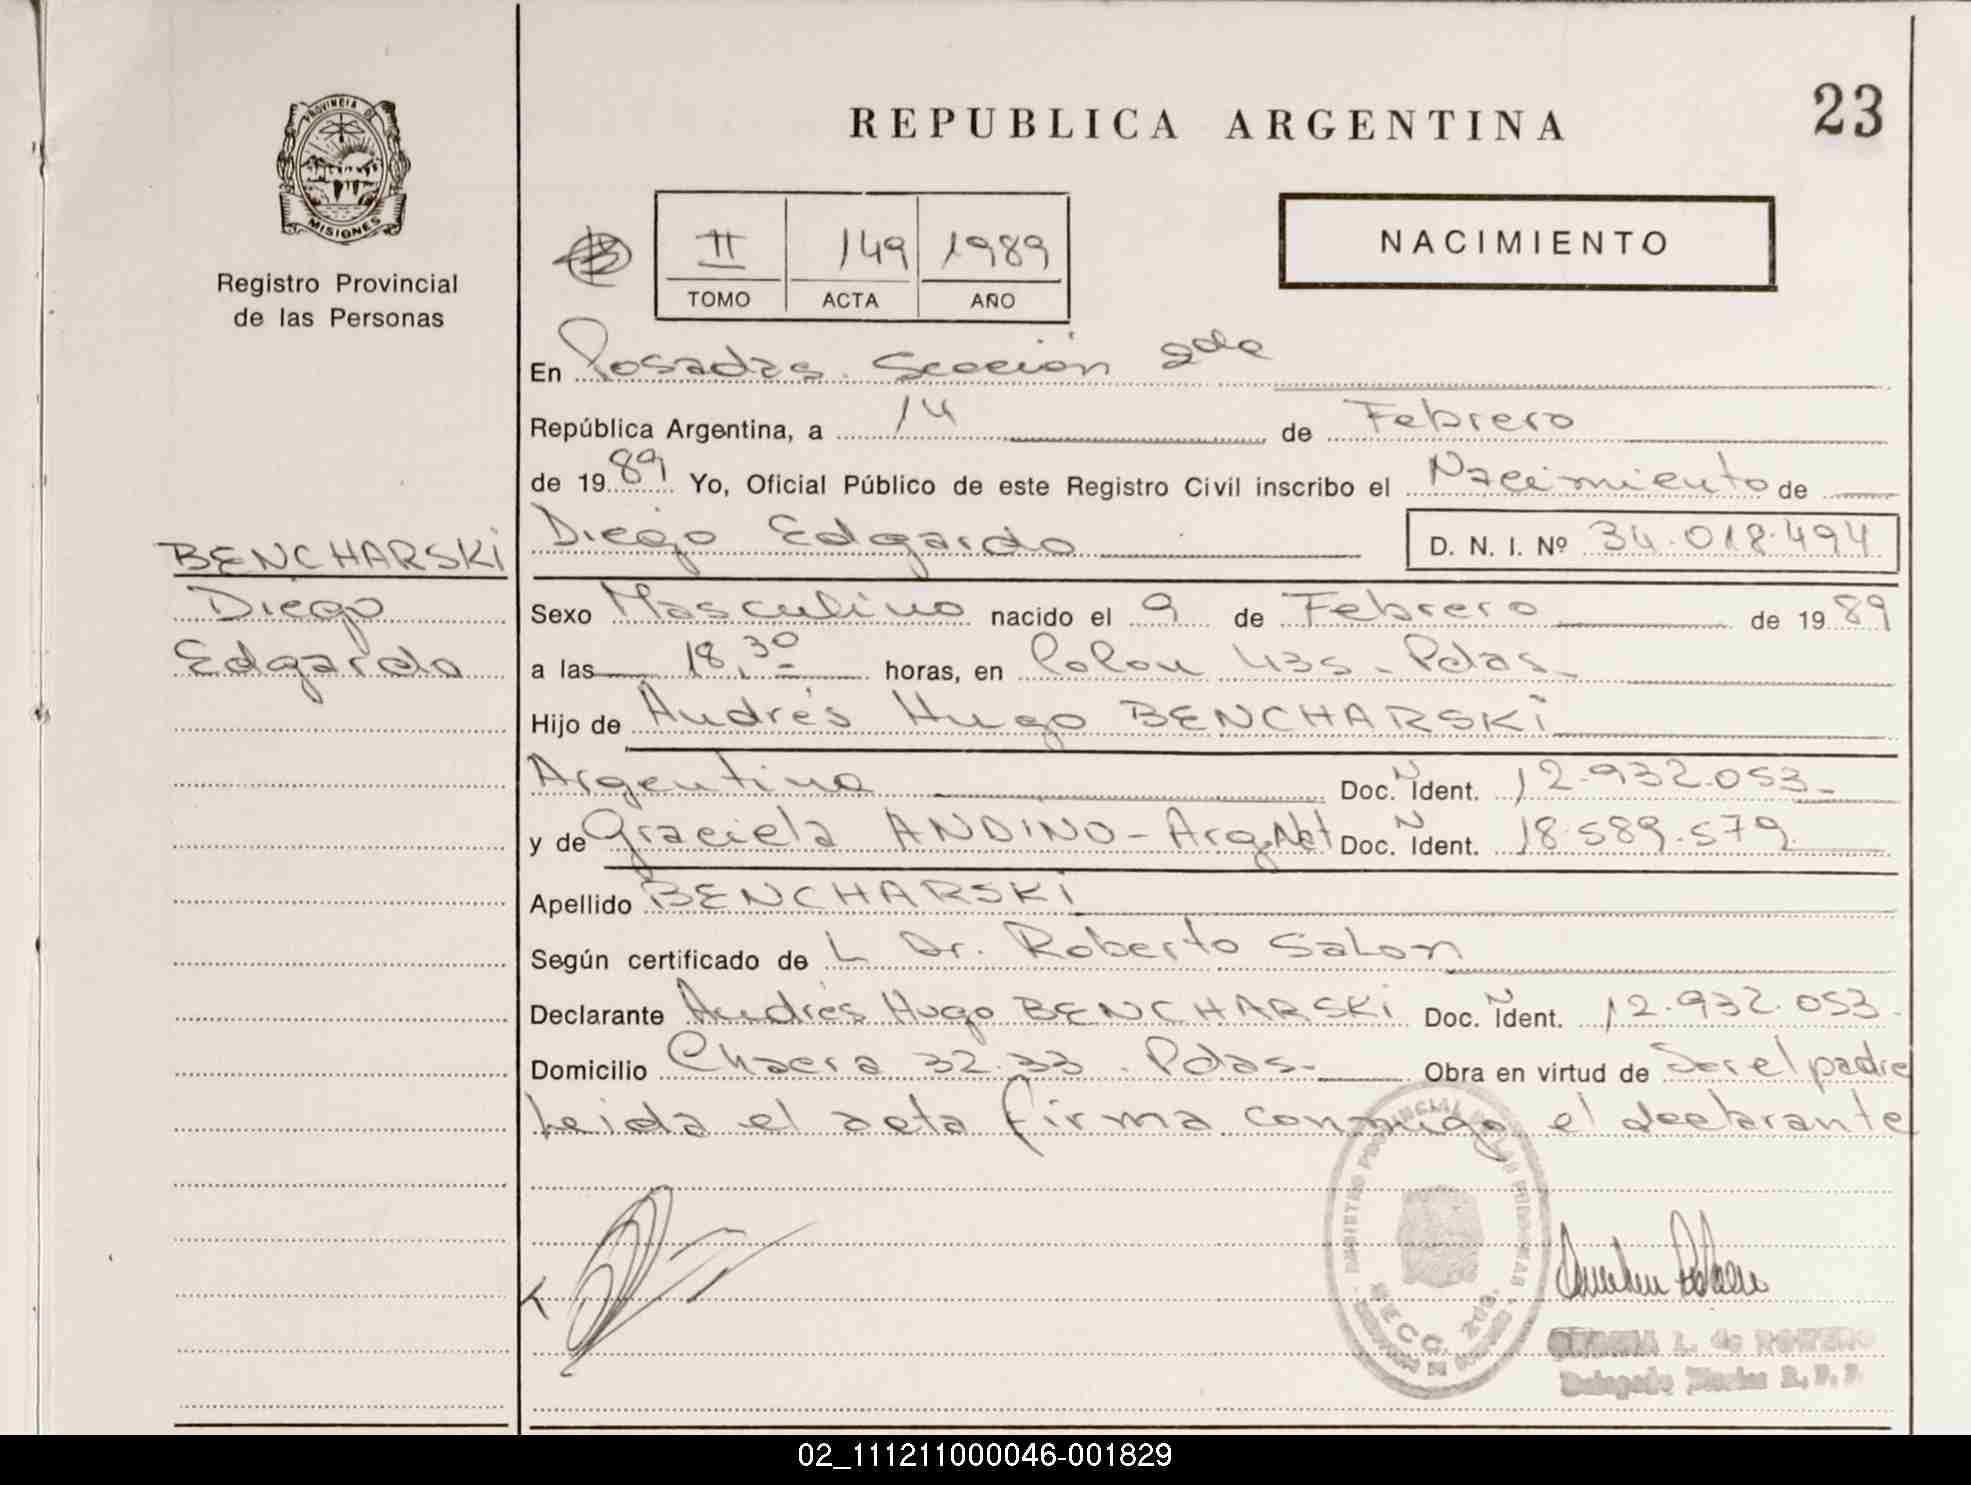 PROVINCIA DE
MISIONES
Registro Provincial
de las Personas
BENCHARSKI
Diego
Edgardo
REPUBLICA ARGENTINA
23
II 149 1989
TOMO ACTA AÑO
NACIMIENTO
En Posadas Sección 2da
República Argentina, a 14 de Febrero
de 1989 Yo, Oficial Público de este Registro Civil inscribo el Nacimiento de
Diego Edgardo D. N. I. Nº 34.018.494
Sexo Masculino nacido el 9 de Febrero de 1989
a las 18,30 horas, en Colon 435 - Pdas
Hijo de Andrés Hugo BENCHARSKI
Argentino Doc. Ident. 12.932.053
y de Graciela ANDINO - Arg. Nat Doc. Ident. 18.589.579
Apellido BENCHARSKI
Según certificado de L Dr. Roberto Salom
Declarante Andrés Hugo BENCHARSKI Doc. Ident. 12.932.053
Domicilio Chacra 32.33 . Pdas. Obra en virtud de Ser el padre
Leida el acta firma conmigo el declarante
SECC. 2da.
02_111211000046-001829